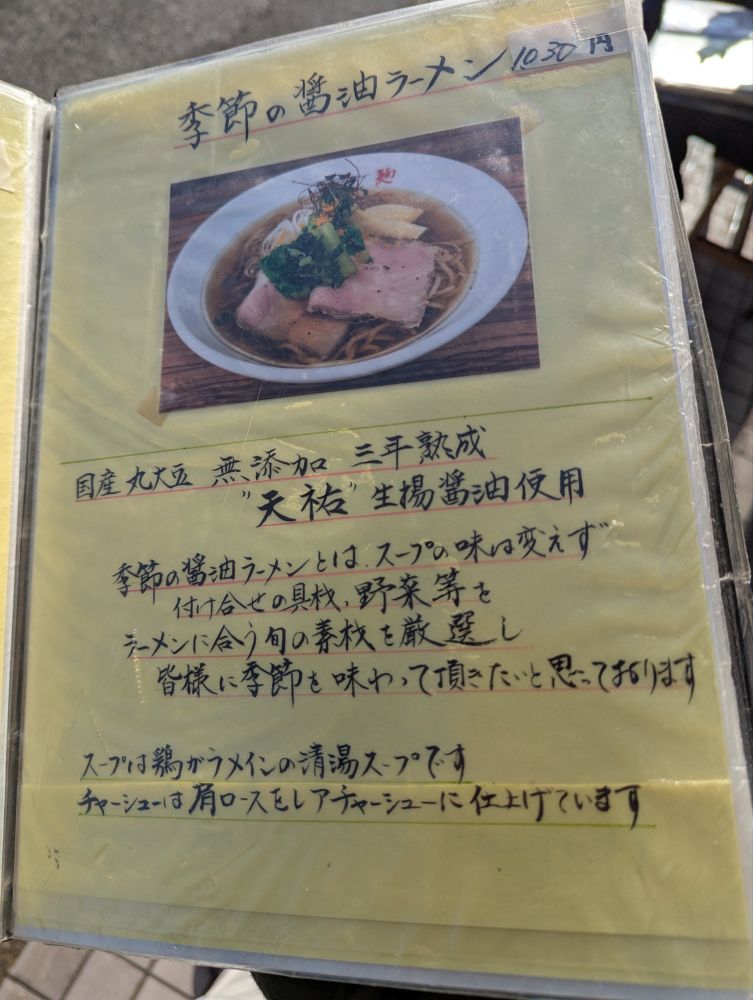 季節の醤油ラーメン 1030円
麺
国産丸大豆 無添加 三年熟成
"天祐" 生揚醤油使用
季節の醤油ラーメンとは、スープの味は変えず
付け合せの具材、野菜等を
ラーメンに合う旬の素材を厳選し
皆様に季節を味わって頂きたいと思っております
スープは鶏ガラメインの清湯スープです
チャーシューは肩ロースをレアチャーシューに仕上げています